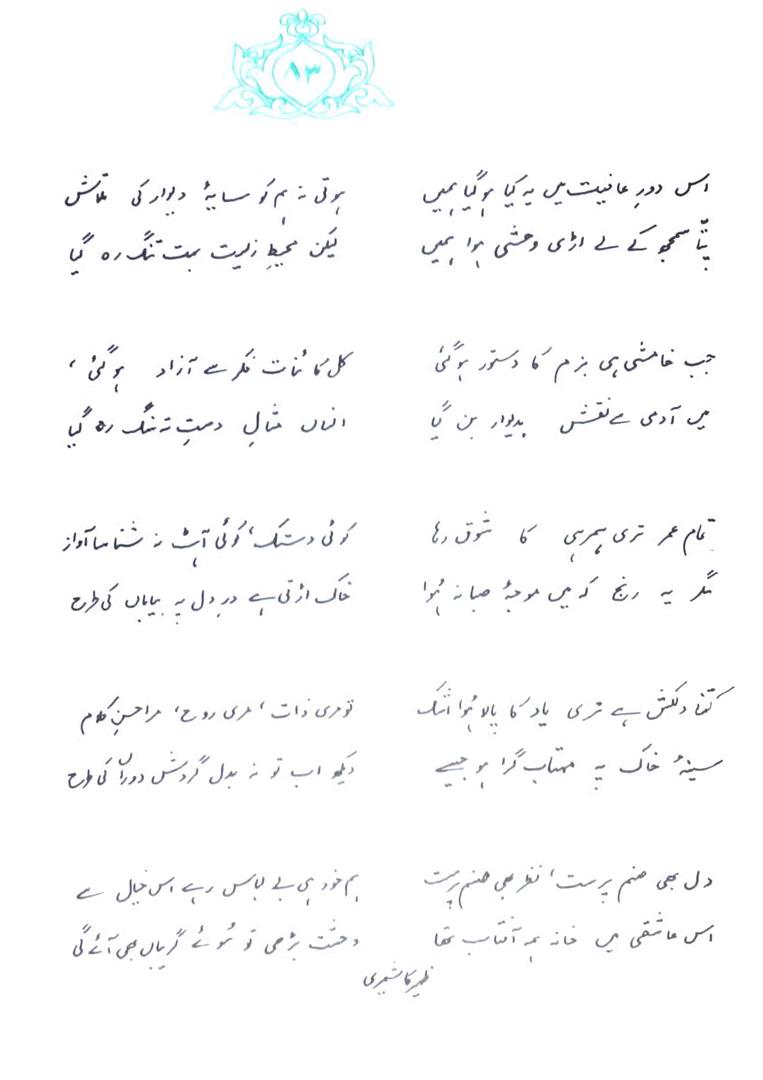 ۸۳
اس دورِ عافیت میں یہ کیا ہو گیا ہمیں ہوتی نہ ہم کو سایۂ دیوار کی تلاش
پتّا سمجھ کے لے اڑی وحشی ہوا ہمیں لیکن محیطِ زیست بہت تنگ رہ گیا
جب خامشی ہی بزم کا دستور ہو گئی کل کائنات فکر سے آزاد ہو گئی،
میں آدمی سے نقش بدیوار بن گیا انساں مثالِ دستِ تہِ سنگ رہ گیا
تمام عمر تری ہمرہی کا شوق رہا کوئی دستک، کوئی آہٹ نہ شناسا آواز
مگر یہ رنج کہ میں موجۂ صبا نہ ہُوا خاک اڑتی ہے درِ دل پہ بیاباں کی طرح
کتنا دلکش ہے تری یاد کا پالا ہُوا اشک تو مری ذات، مری روح، مرا حسنِ کلام
سینۂ خاک پہ مہتاب گرا ہو جیسے دیکھ اب تو نہ بدل گردشِ دوراں کی طرح
دل بھی صنم پرست، نظر بھی صنم پرست ہم خود ہی بے لباس رہے اس خیال سے
اس عاشقی میں خانہ ہمہ آفتاب تھا وحشت بڑھی تو سُوئے گریباں بھی آئے گی
ظہیر کاشمیری